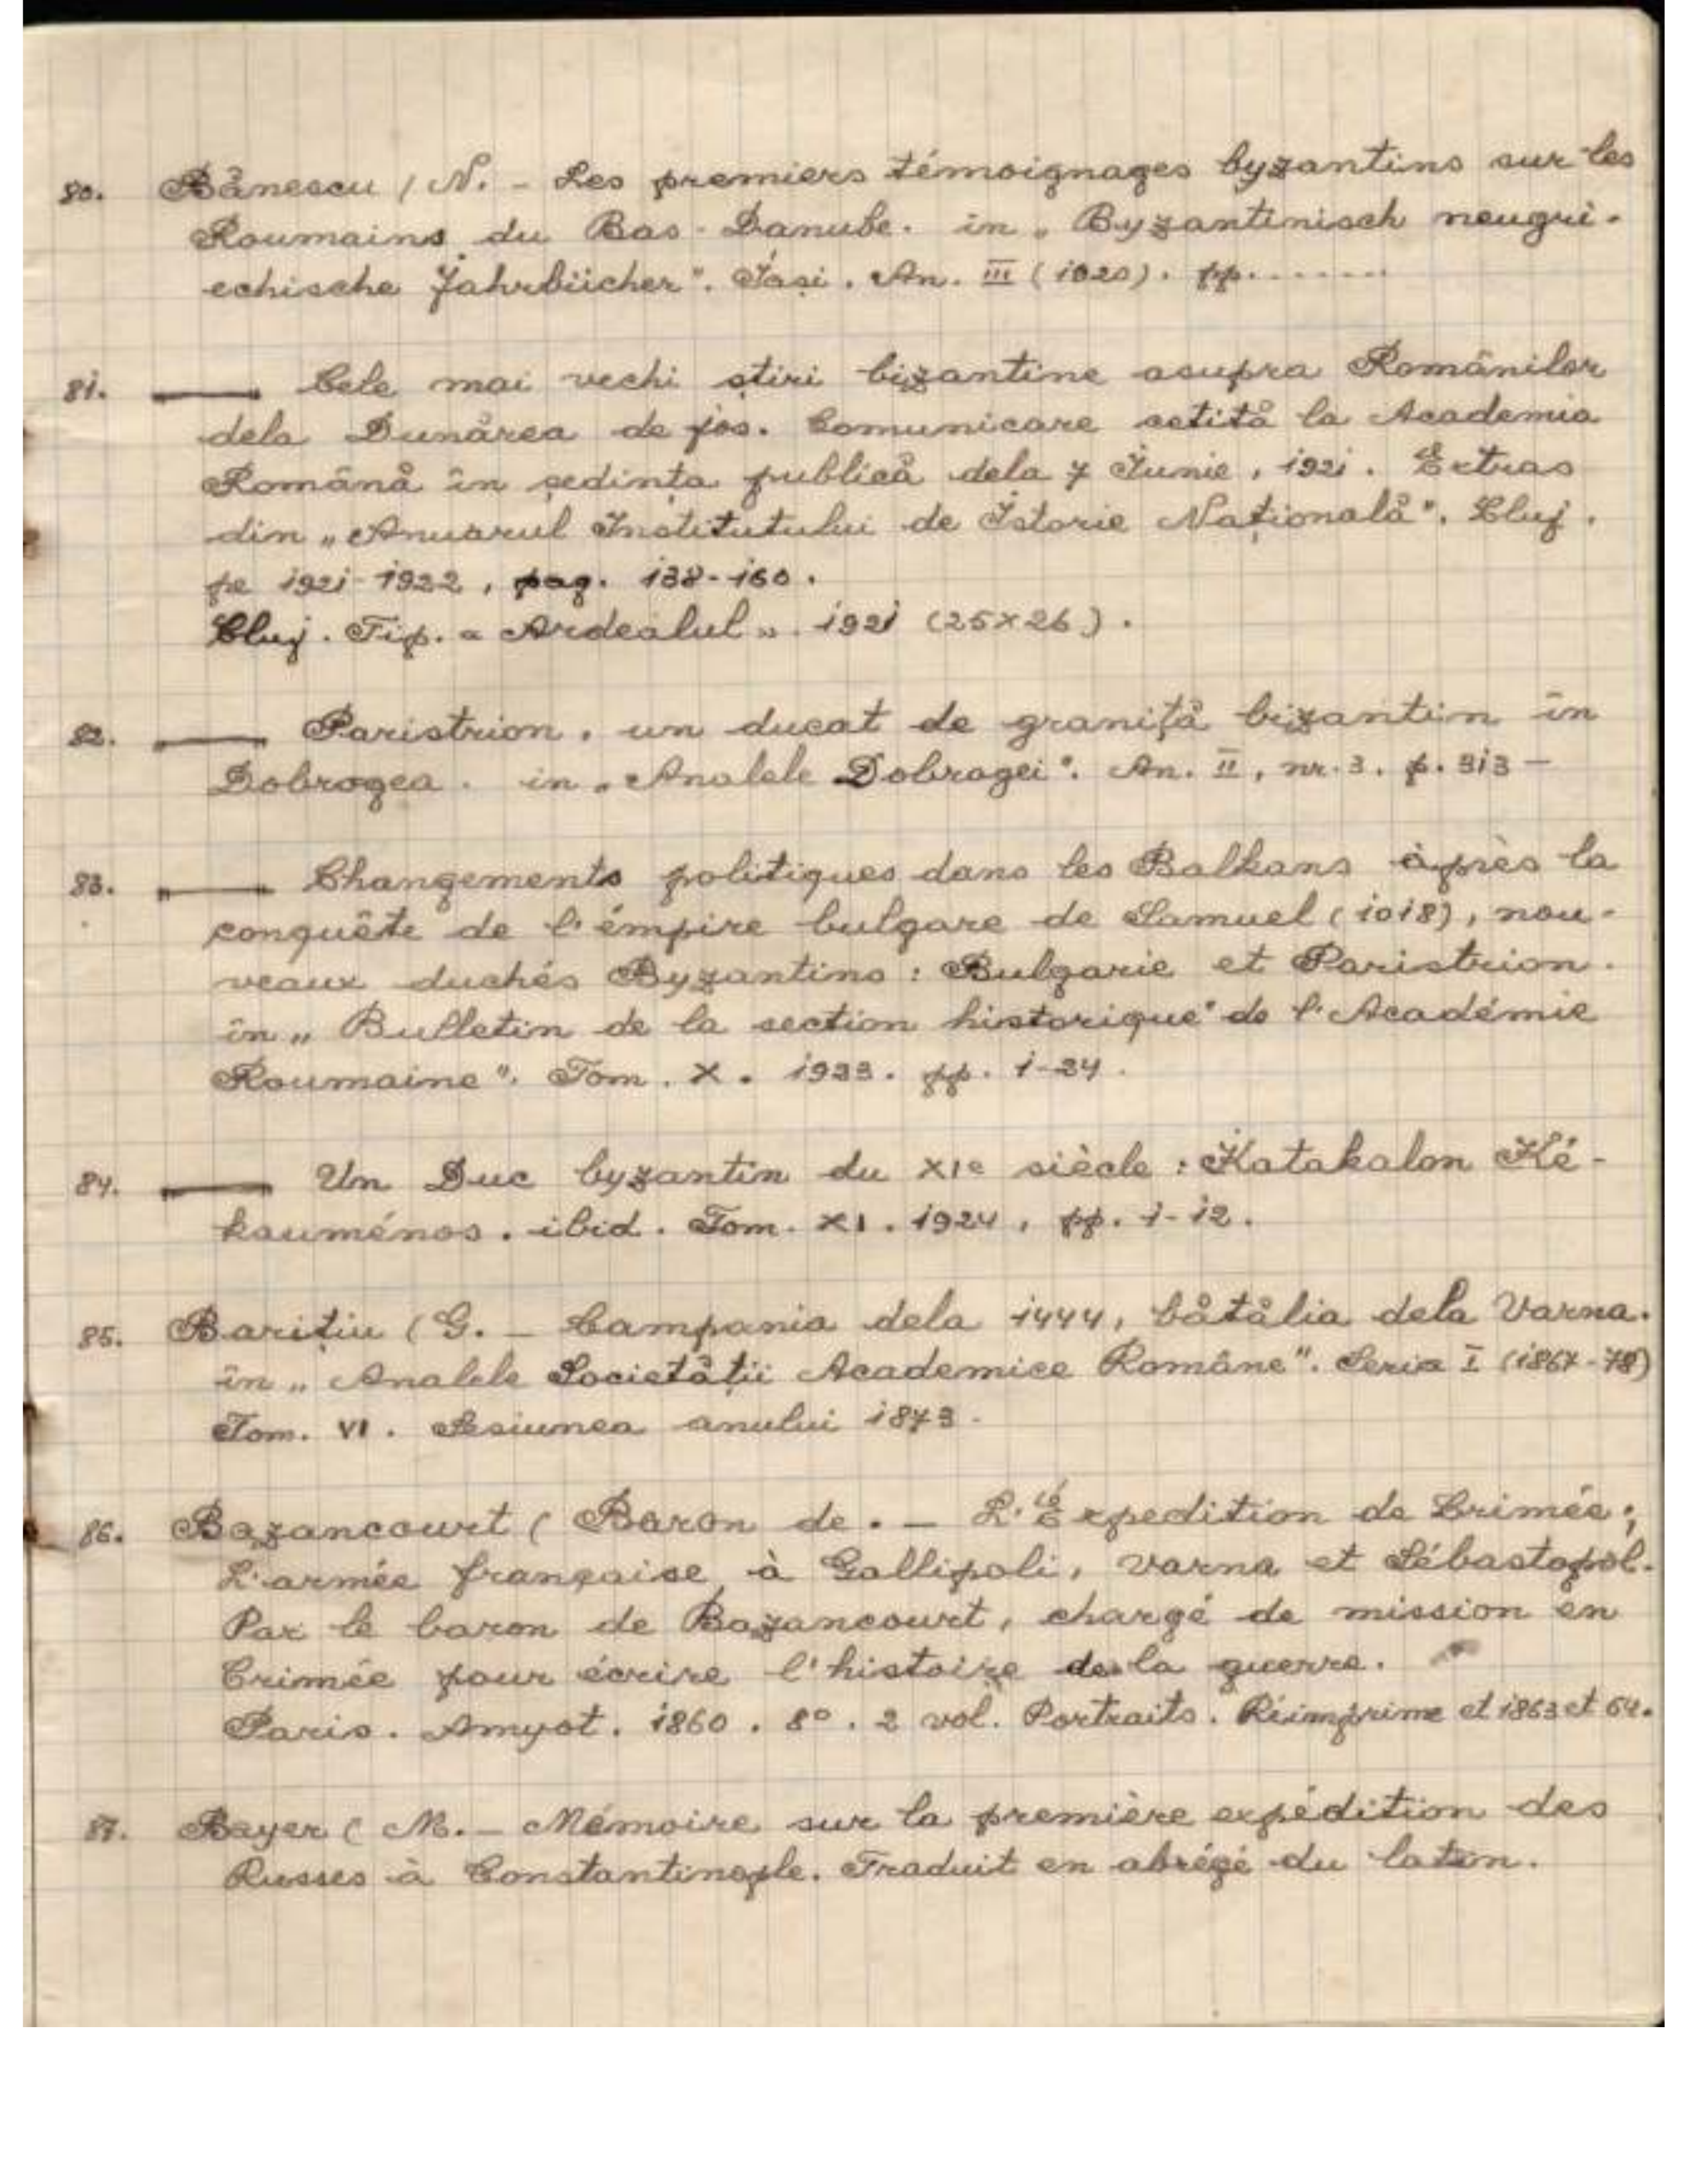 80. Bånescu (N. - Les premiers témoignages byzantins sur les
Roumains du Bas-Danube. in „Byzantinisch neugri-
echische Jahrbücher". Iași. An. III (1920). pp. .......
81. ——— Cele mai vechi știri bizantine asupra Românilor
dela Dunårea de jos. Comunicare cetitå la Academia
Românå în ședința publicå dela 7 Iunie, 1921. Extras
din „Anuarul Institutului de Istorie Naționalå". Cluj.
pe 1921-1922, pag. 138-160.
Cluj. Tip. „Ardealul„. 1921 (25x26).
82. ——— Paristrion, un ducat de granițå bizantin în
Dobrogea. in „Analele Dobrogei". An. II, nr. 3. p. 313 —
83. ——— Changements politiques dans les Balkans après la
conquête de l'émpire bulgare de Samuel (1018), nou-
veaux duchés Byzantins : Bulgarie et Paristrion.
în „Bulletin de la section historique" de l'Académie
Roumaine". Tom. X. 1923. pp. 1-24.
84. ——— Un Duc byzantin du XIe siècle : Katakalon Ké-
kauménos. ibid. Tom. XI. 1924, pp. 1-12.
85. Barițiu (G. — Campania dela 1444, båtålia dela Varna.
în „Analele Societåții Academice Române". Seria I (1867-78)
Tom. VI. Sesiunea anului 1873.
86. Bazancourt (Baron de. — L'Expedition de Crimée;
L'armée française à Gallipoli, Varna et Sébastopol.
Par le baron de Bazancourt, chargé de mission en
Crimée pour écrire l'histoire de la guerre.
Paris. Amyot. 1860. 8°. 2 vol. Portraits. Réimprime et 1863 et 64.
87. Bayer (M. — Mémoire sur la première expédition des
Russes à Constantinople. Traduit en abrégé du latin.